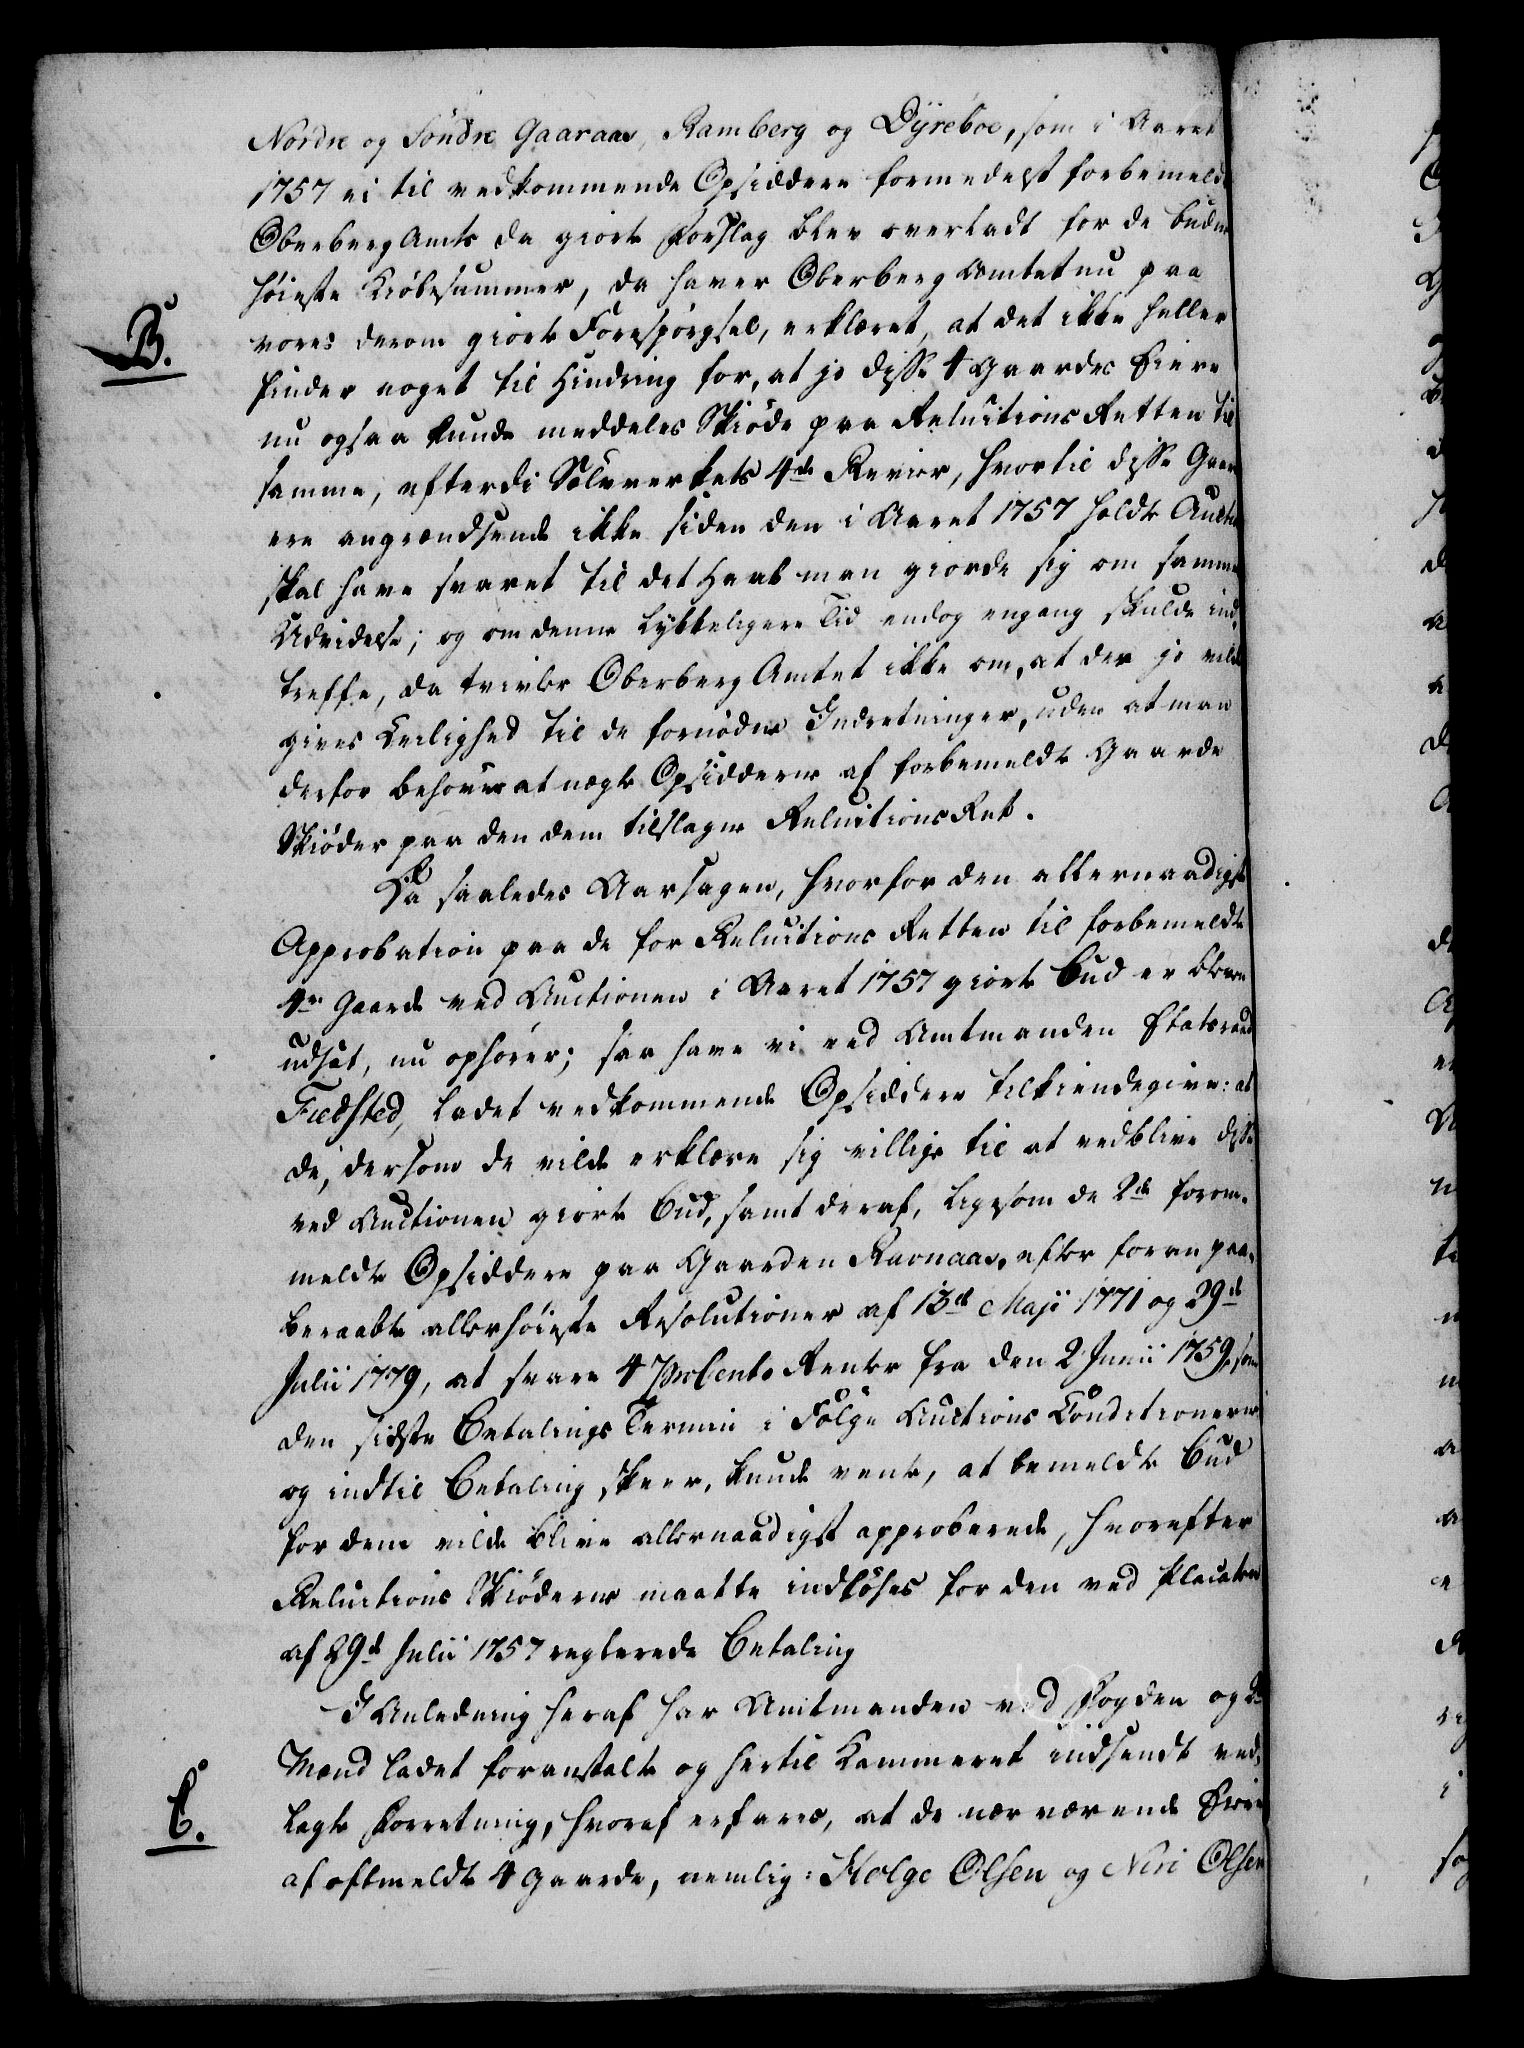 Nordre og Söndre Gaaraas, Ramberg og Dÿreboe, som i Aaret
1757 ei til vedkommende Opsiddere formedelst forbemeldte
Oberberg Amts da giorte Forslag blev overladt for de budne
höieste Kiöbesummer, da haver Oberberg Amtet nu paa
vores derom giorte Forespörgsel, erklæret, at det ikke heller
B.
finder noget til Hindring for, at jo disse 4 Gaardes Eiere
nu ogsaa kunde meddeles Skiöde paa Reluitions Retten til
samme, efterdi Sölvverkets 4de Revier, hvortil disse Gaar
ere angrændsende ikke siden den i Aaret 1757 holdte Auction
skal have svaret til det Haab man giorde sig om samme
Udvidelse; og om denne lykkeligere Tid endog engang skulde ind-
treffe, da tvivler Oberberg Amtet ikke om, at der jo vilde
gives Leilighed til de fornödne Indretninger, uden at man
derfor behöver at nægte Opsidderne af forbemeldte Gaarde
Skiöder paa den dem tilslagne Reluitions Ret.
Da saaledes Aarsagen, hvorfor den allernaadigste
Approbation paa de for Reluitions Retten til forbemeldte
4re Gaarde ved Auctionen i Aaret 1757 giorte Bud er bleven
udsat, nu ophörer; saa have vi ved Amtmanden Etatsraad
Fiedsted, ladet vedkommende Opsiddere tilkiendegive: at
de, dersom de vilde erklære sig villige til at vedblive disse
ved Auctionen giorte Bud, samt deraf, ligesom de 2de forom-
meldte Opsiddere paa Gaarden Ravnaas, efter foran paa-
beraabte allerhöieste Resolutioner af 13de Maji 1771 og 29de
Julii 1779, at svare 4 ProCento Renter fra den 2 Junii 1759, som
den sidste Betalings Termin i Fölge Auctions Conditionerne
og indtil Betaling skeer, kunde vente, at bemeldte Bud
for dem vilde blive allernaadigst approberede, hvorefter
Reluitions Skiöderne maatte indlöses for den ved Placaten
af 29de Julii 1757 reglerede Betaling
I Anledning heraf har Amtmanden ved Fogden og 2de
Mænd ladet foranstalte og hertil Kammeret indsendt ved-
C.
lagte Forretning, hvoraf erfares, at de nærværende Eiere
af oftmeldte 4 Gaarde, nemlig: Helge Olsen og Niri Olsen